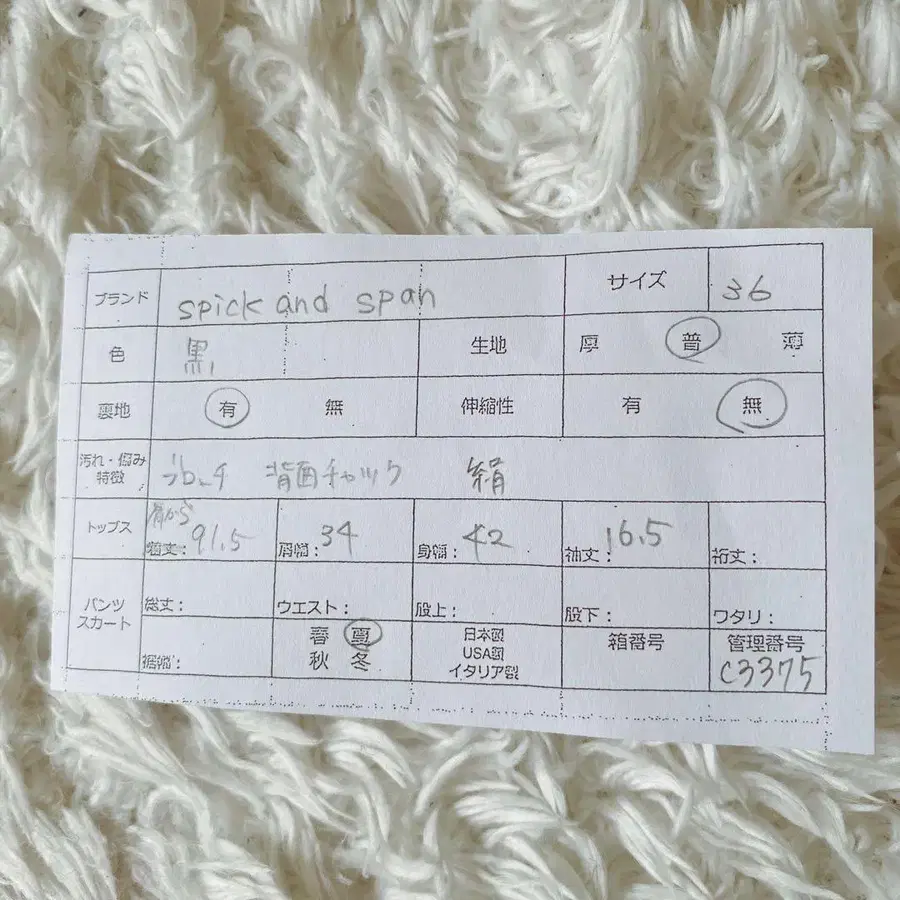 ブランド spick and span サイズ 36
色 黒 生地 厚 普 薄
裏地 有 無 伸縮性 有 無
汚れ・傷み 背面チャック 絹
特徴
トップス 肩から
着丈: 91.5 肩幅: 34 身幅: 42 袖丈: 16.5 裄丈:
パンツ
スカート 総丈: ウエスト: 股上: 股下: ワタリ:
裾幅: 春 夏 日本製 箱番号 管理番号
秋 冬 USA製 C3375
イタリア製